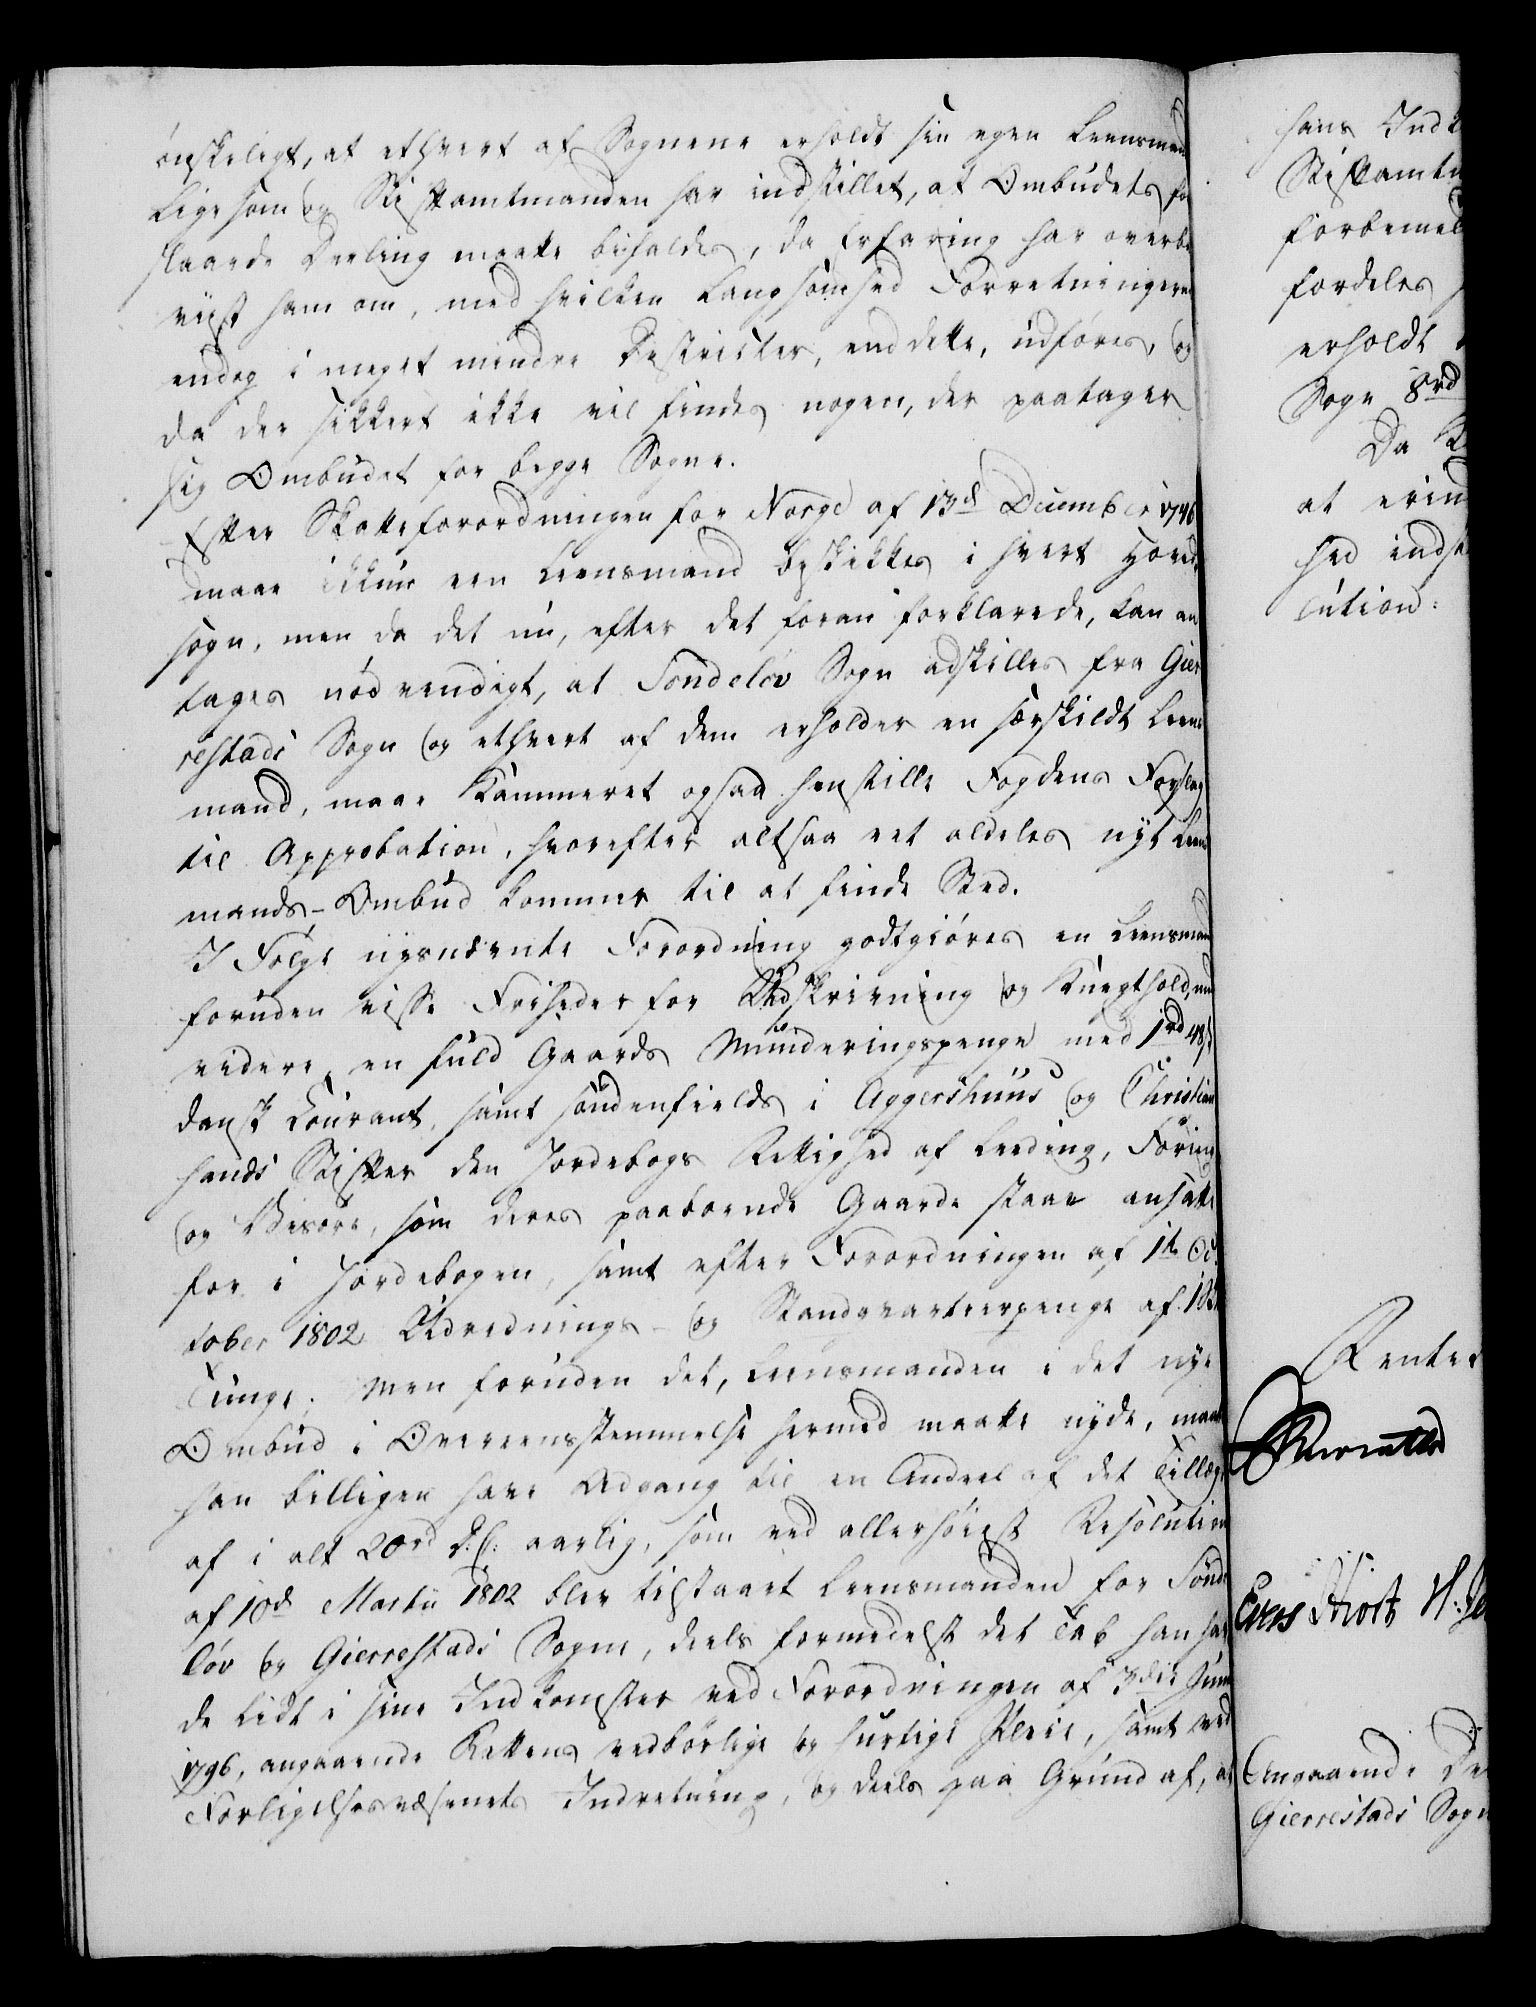 ønskeligt, at ethvert af Sognene erholdt sin egen Leensmand
Ligesom og Stiftamtmanden har indstillet, at Ombudets fore
slaaede Deeling maatte bifaldes, da Erfaring har overbe
viist ham om, med hvilken Langsomhed Forretningerne
endog i meget mindre Destricter, end dette, udføres, og
da der sikkert ikke vil findes nogen, der paatager
sig Ombudet for begge Sogne.
Efter Skatteforordningen for Norge af 13d December 1746
maae ikkun een Leensmand beskikkes i hvert Hoved
sogn, men da det nu, efter det foran forklarede, kan an
tages nødvendigt, at Søndeløv Sogn adskilles fra Gier
restads Sogn og ethvert af dem erholder en særskildt Leens
mand, maae Kammeret ogsaa henstille Fogdens Forslag
til Approbation, hvorefter altsaa eet aldeles nyt Leens
mands-Ombud kommer til at finde Sted.
I Følge nysnævnte Forordning godtgiøres en Leensmand
foruden visse Friheder for Udskrivning og Knegthold, end
videre, en fuld Gaards Munderingspenge med 1rd 48s
dansk Courant, samt søndenfields i Aggershuus og Christian
sands Stifter den Jordebogs Rettighed af Leeding, Foring
og Viisøre, som deres paaboende Gaarde staae ansatte
for i Jordebogen, samt efter Forordningen af 1te Oc
tober 1802 Udrednings- og Standqvarteerpenge af
Tunge; Men foruden det, Leensmanden i det nye
Ombud i Overeensstemmelse hermed maatte nyde, maae
han billigen have Adgang til en Andeel af det Tillæg
af i alt 20rd D.C. aarlig, som ved allerhøiest Resolution
af 10d Martii 1802 blev tilstaaet Leensmanden for Sønde
løv og Gierrestads Sogne, deels formedelst det Tab han hav
de lidt i sine Indkomster ved Forordningen af 3die Junii
1796, angaaende Rettens vedbørlige og hurtige Pleie, samt ved
Forligelsesvæsenets Indretning, og deels paa Grund af, at
hans Ind
Stiftamtm
forbemel
fordeles
erholdt
Sogn 8rd
Da
at erind
hed indst
lution:
Rente
Evers Hiort H:
Angaaende De
Gierrestads Sogn